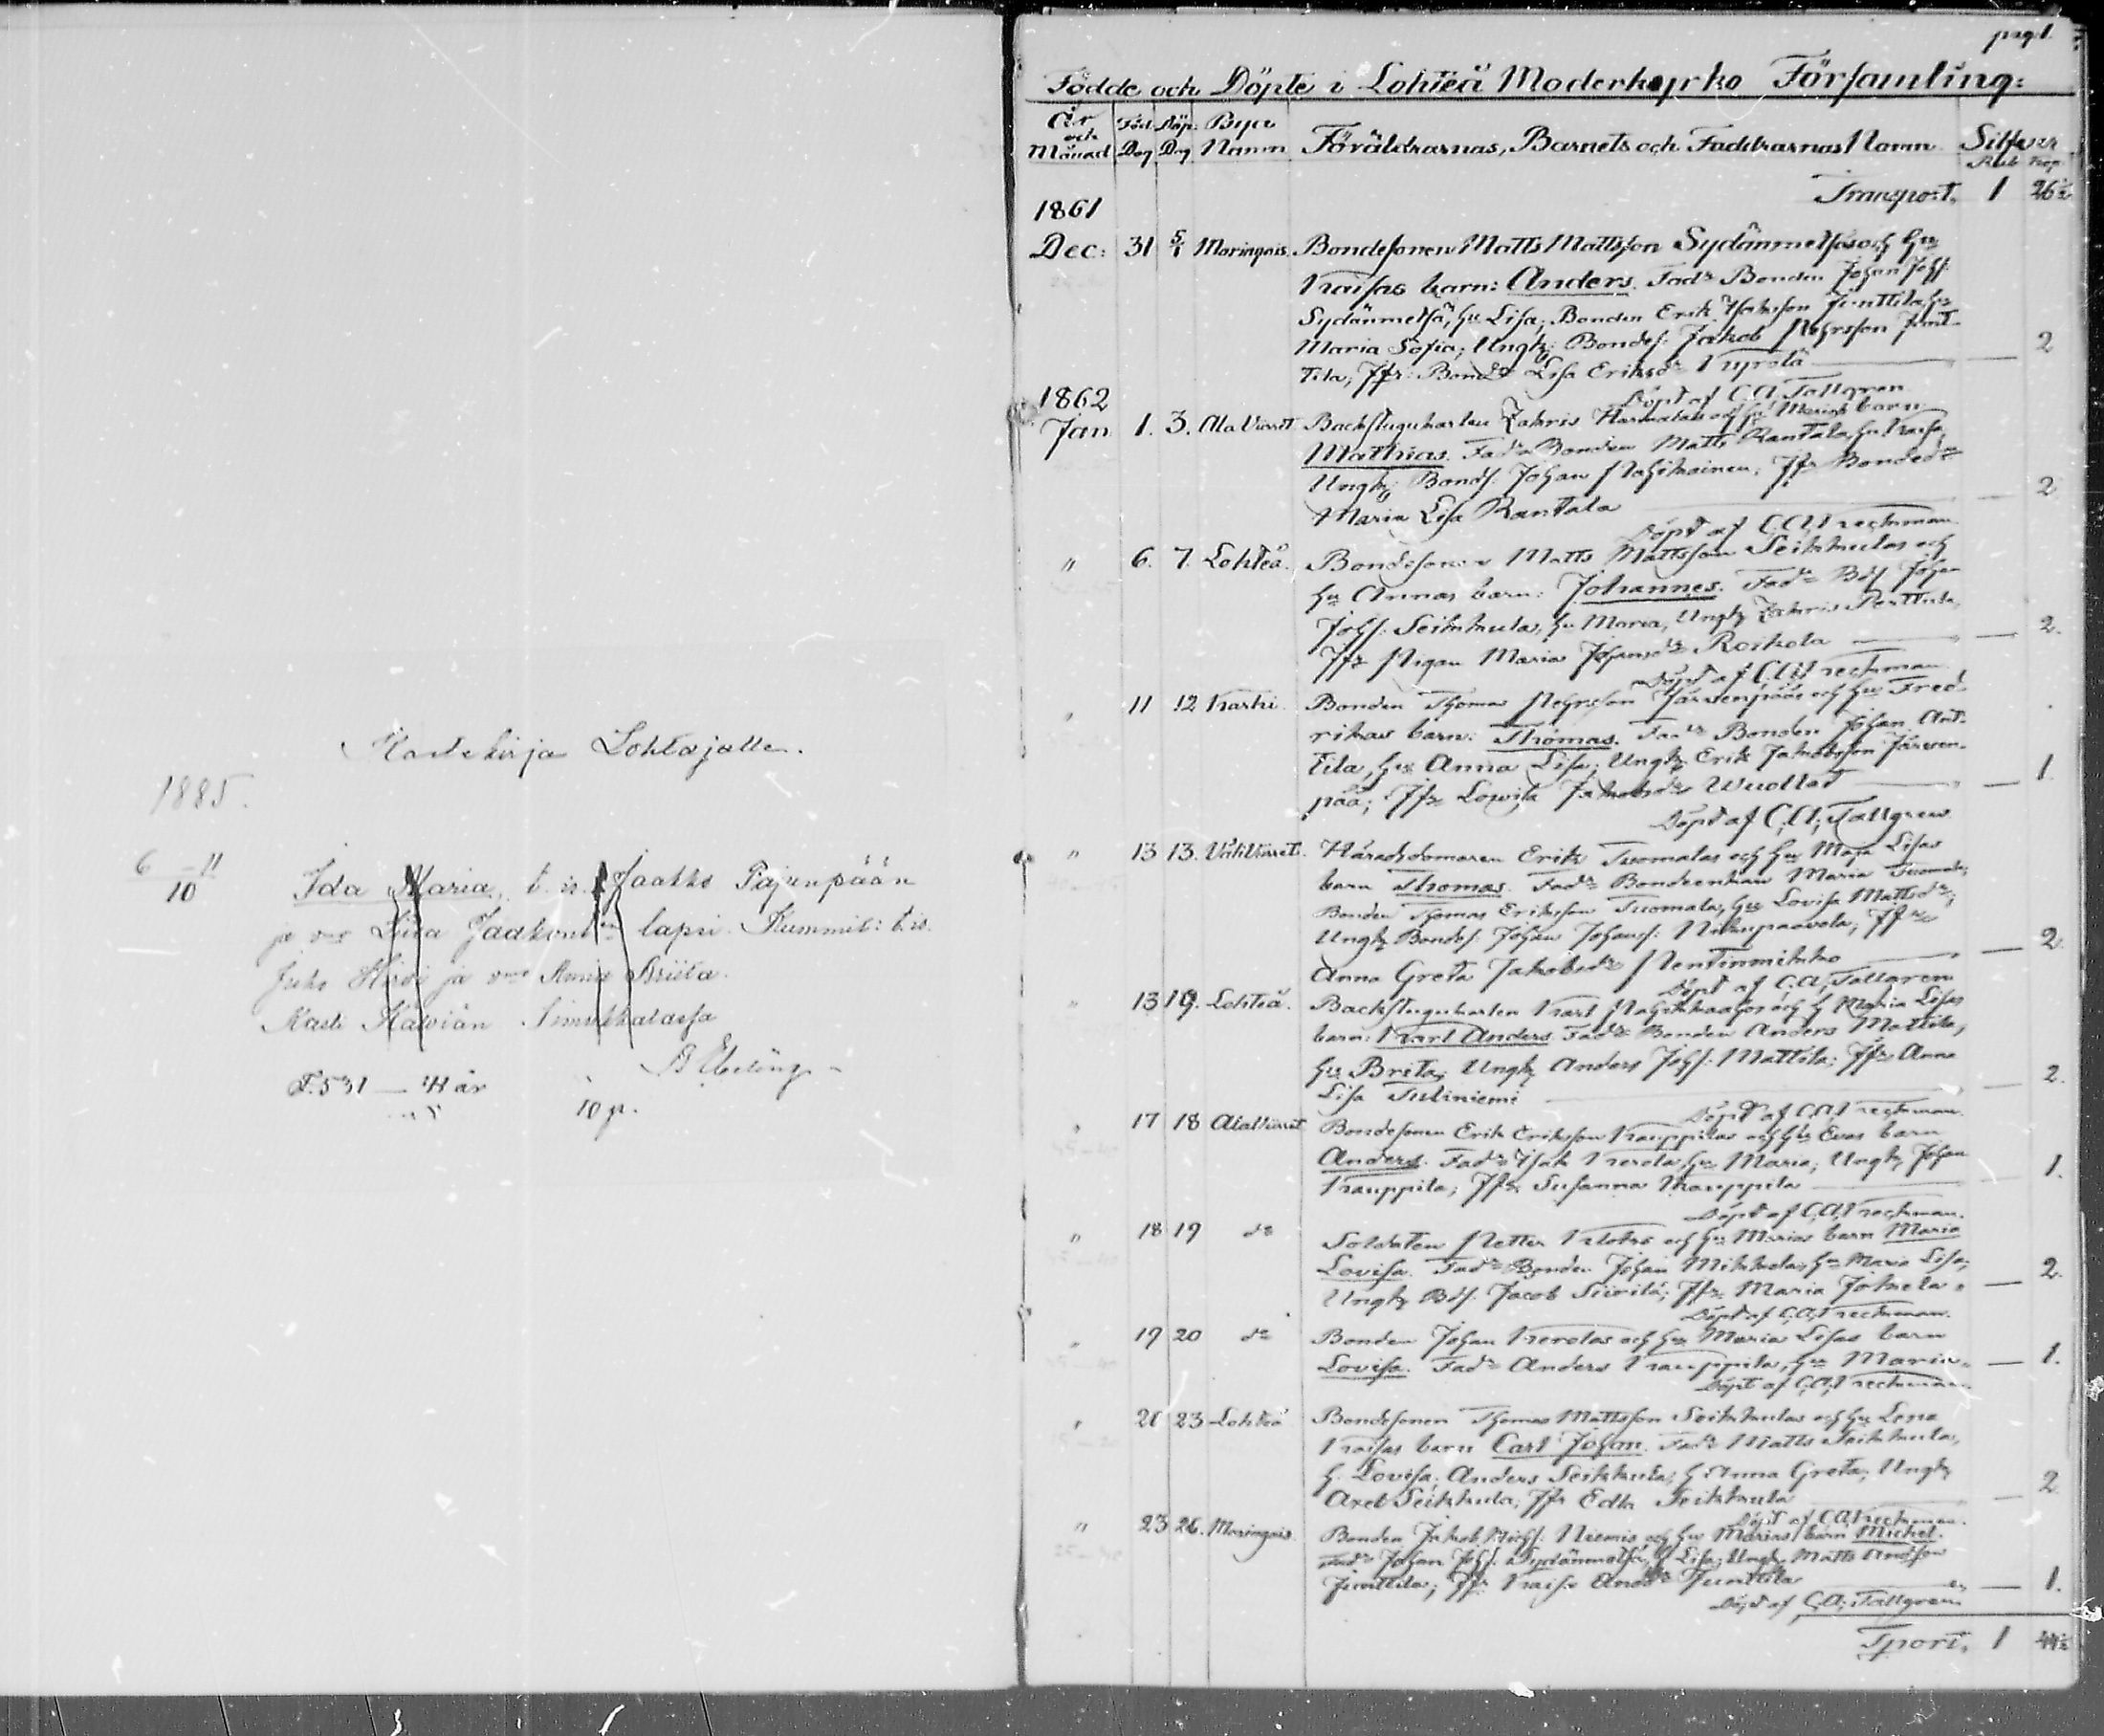 Kastekirja Lohtajalle.
1885.
6–11
10
Ida Maria, t. is. Jaakko Pajunpään
ja vmo Liisa Jaakont:en lapsi. Kummit: t. is.
Juho Hirvi ja vmo Anna Briita.
Kast. Kälviän
F. 531 — 41 år
10 p.
pag 1.
Födde och Döpte i Lohteå Moderkyrko Församling:
År och Månad Föd. Dag Döp. Dag Bya Namn Föräldrarnas, Barnets och Faddrarnas Namn Silfver Rub. Kop.
Transport, 1 26½
1861
Dec: 31 5/1 Maringais. Bondesonen Matts Mattsson Sydänmetsäs och hu
Kaisas barn: Anders. Fadr Bonden Johan Johs.
Sydänmetsä, hu Lisa; Bonden Erik Isaksson Junttila, hu
Maria Sofia; Ungk: Bondes. Jakob Pehrsson Junt-
tila; Jfr: Bondedr Lisa Eriksdr Kyrölä — 2
Döpt af C. A. Tallgren
1862
Jan 1. 3. Ala Viirret Backstuguharlen Zakris Harmalas och hu Marias barn
Mathias. Fadr Bonden Matts Rantala, hu Kaisa,
Ungk: Bonds. Johan Pahikainen; Jfr Bondedr
Maria Lisa Rantala — 2
Döpt af C. A. Krechman.
" 6. 7. Lohteå. Bondesonen Matts Mattsson Seikkulas och
hu Annas barn: Johannes. Fadr Bds Johan
Johs. Seikkula, hu Maria, Ungk Zakris Perttula,
Jfr Pigan Maria Johansdr Roikola — 2.
Döpt af C. A. Krechman
" 11 12 Karhi. Bonden Thomas Pehrsson Järvenpääs och hu Fred-
rikas barn: Thomas. Fadr Bonden Johan Ant-
tila, hu Anna Lisa; Ungk Erik Jakobsson Järven-
pää; Jfr Lovisa Jakobsdr Wuollet — 1.
Döpt af C. A. Tallgren
" 13 13. Väli Viirret. Häradsdomaren Erik Tuomalas och hu Maja Lisas
barn Thomas. Fadr Bondeenkan Maria Tuomala;
Bonden Thomas Eriksson Tuomala, hu Lovisa Mattsdr;
Ungk Bondes. Johan Johans. Nikupaavola; Jfr
Anna Greta Jakobsdr Pentinmikko — 2.
Döpt af C. A. Tallgren
" 13 19. Lohteå. Backstuguharlen Karl och h Maria Lisas
barn: Karl Anders. Fadr Bonden Anders Mattila,
hu Brita; Ungk Anders Johs. Mattila; Jfr Anna
Lisa Tuliniemi — 2.
Döpt af C. A. Krechman.
" 17 18 Ala Viirret Bondesonen Erik Eriksson Kauppilas och hu Evas barn
Anders. Fadr Isak Kerola, hu Maria; Ungk Johan
Kauppila; Jfr Susanna Kauppila — 1.
Döpt af C. A. Krechman.
" 18 19 do Soldaten Petter Klokrs och hu Marias barn Maria
Lovisa. Fadr Bonden Johan Mikkola, hu Maria Lisa;
Ungk Bds. Jacob Siirilä; Jfr Maria Jokela. — 2.
Döpt af C. A. Krechman.
" 19 20 do Bonden Johan Kerolas och hu Maria Lisas barn
Lovisa. Fadr Anders Kauppila, hu Maria. — 1.
Döpt af C. A. Krechman.
" 20 23 Lohteå Bondesonen Thomas Mattsson Seikkulas och hu Lena
Kaisas barn Carl Johan. Fadr Matts Seikkula,
h. Lovisa; Anders Seikkula; h Anna Greta; Ungk
Axel Seikkula; Jfr Edla Seikkula — 2
Döpt af C. A. Krechman.
" 23 26. Maringais Bonden Jakob Michs. Niemis och hu Marias barn Michel.
Fadr Johan Johs. Sydänmetsä, h Lisa; Ungk Matts Andsson
Junttila; Jfr Kaisa Andsdr Junttila — 1.
Döpt af C. A. Tallgren
Tport, 1 44½